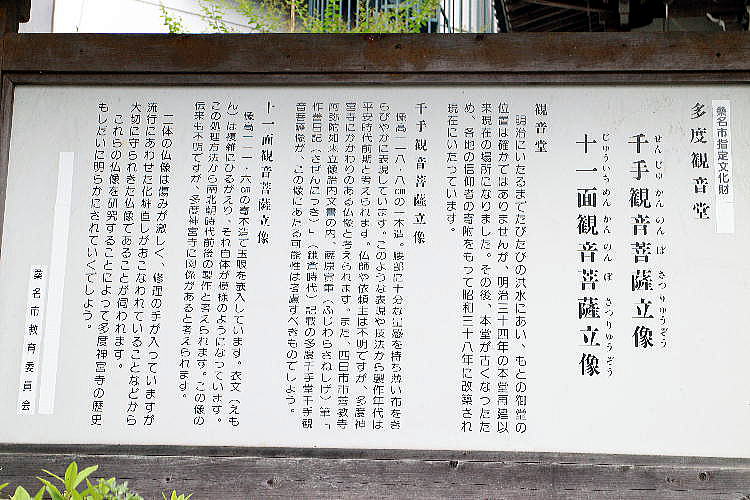 桑名市指定文化財
多度観音堂
せんじゅ かんのん ぼ さつりゅうぞう
千手観音菩薩立像
じゅういちめん かんのん ぼ さつりゅうぞう
十一面観音菩薩立像
観音堂
明治にいたるまでたびたびの洪水にあい、もとの御堂の
位置は確かではありませんが、明治三十四年の本堂再建以
来現在の場所になりました。その後、本堂が古くなったた
め、各地の信仰者の寄附をもって昭和三十八年に改築され
現在にいたっています。
千手観音菩薩立像
像高一一八・八㎝の一木造。腰部に十分な量感を持ち薄い布をき
らびやかに表現しています。このような表現や技法から製作年代は
平安時代前期と考えられます。仏師や依頼主は不明ですが、多度神
宮寺にかかわりのある仏像と考えられます。また、四日市市善教寺
阿弥陀如来立像胎内文書の内、藤原実重（ふじわらさねしげ）筆「
作善日記（さぜんにっき）」（鎌倉時代）記載の多度千手堂千手観
音菩薩像が、この像にあたる可能性は考慮すべきものでしょう。
十一面観音菩薩立像
像高一一一・六㎝の寄木造で玉眼を嵌入しています。衣文（えも
ん）は複雑にひるがえり、それ自体が模様のようになっています。
この処理方法から南北朝時代前後の製作と考えられます。この像の
伝来も不明ですが、多度神宮寺に関係があると考えられます。
二体の仏像は傷みが激しく、修理の手が入っていますが
流行にあわせた化粧直しがおこなわれていることなどから
大切に守られてきた仏像であることが伺われます。
これらの仏像を研究することによって多度神宮寺の歴史
もしだいに明らかにされていくでしょう。
桑名市教育委員会